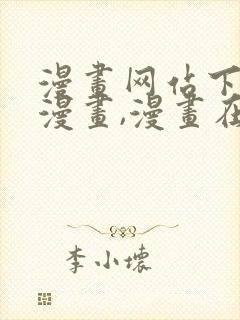 漫畫网佔下
漫畫,漫畫在
李小壞